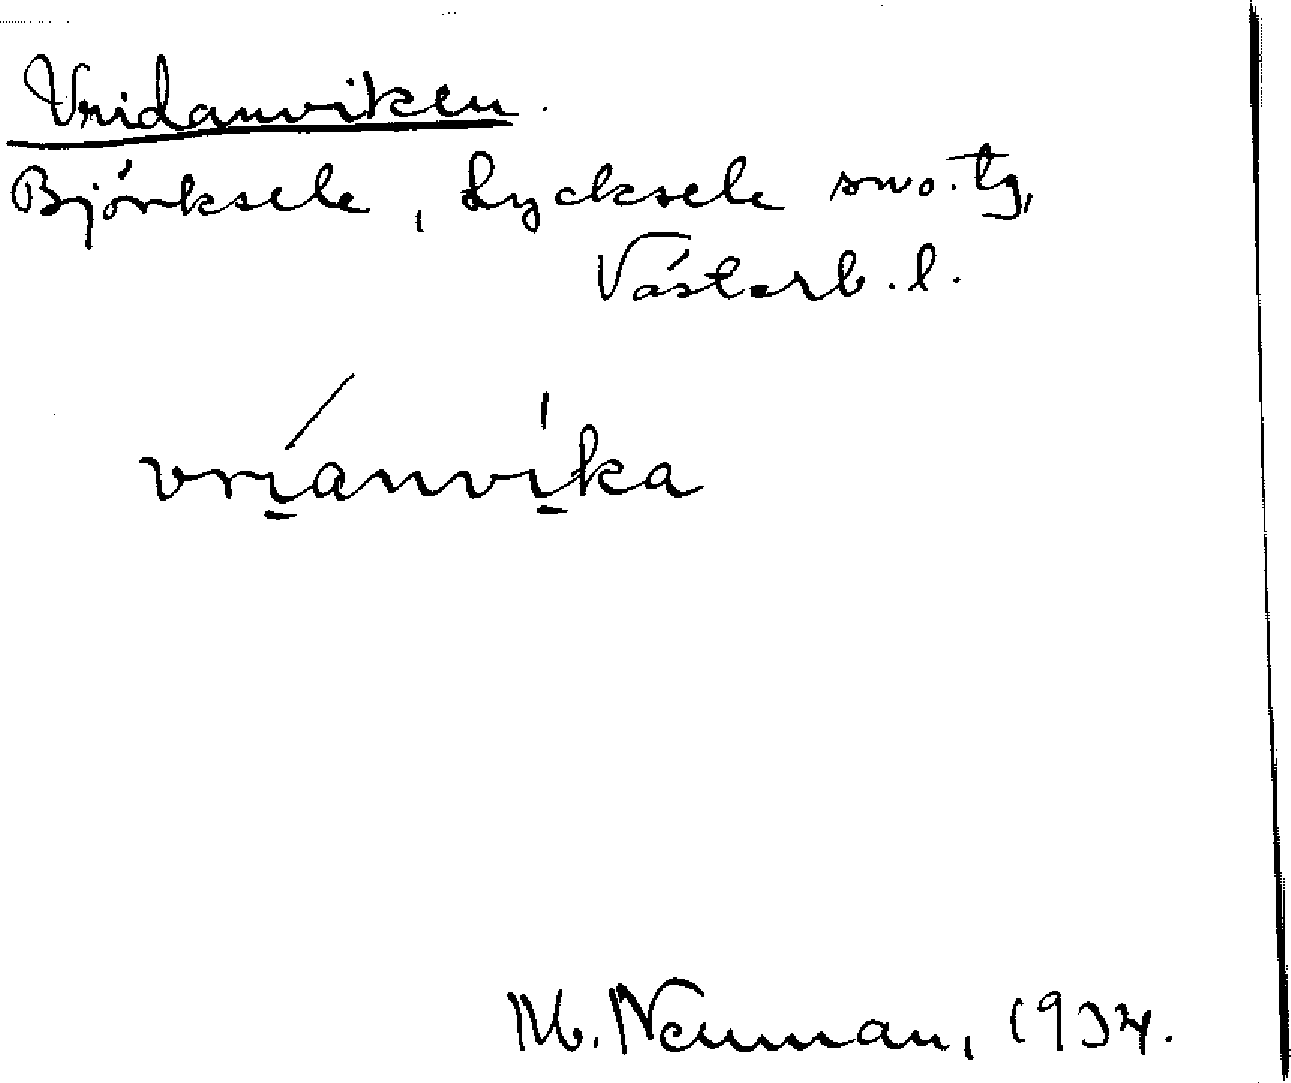 Vridanviken.
Björksele, Lycksele sno. tg,
Västerb. l.
vrianvika
M. Neuman, 1934.